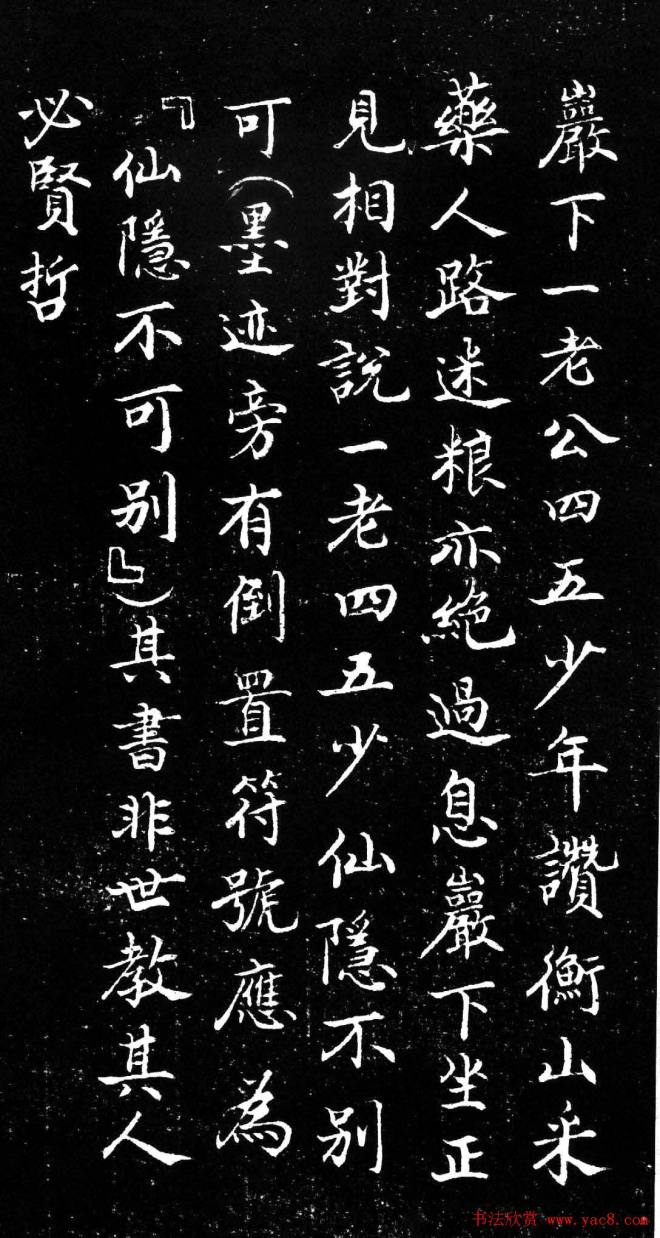 巖下一老公四五少年讚衡山采
藥人路迷粮亦絶過息巖下坐正
見相對說一老四五少仙隱不别
可(墨迹旁有倒置符號應為
『仙隱不可别』)其書非世教其人
必賢哲
书法欣赏 www.yac8.com